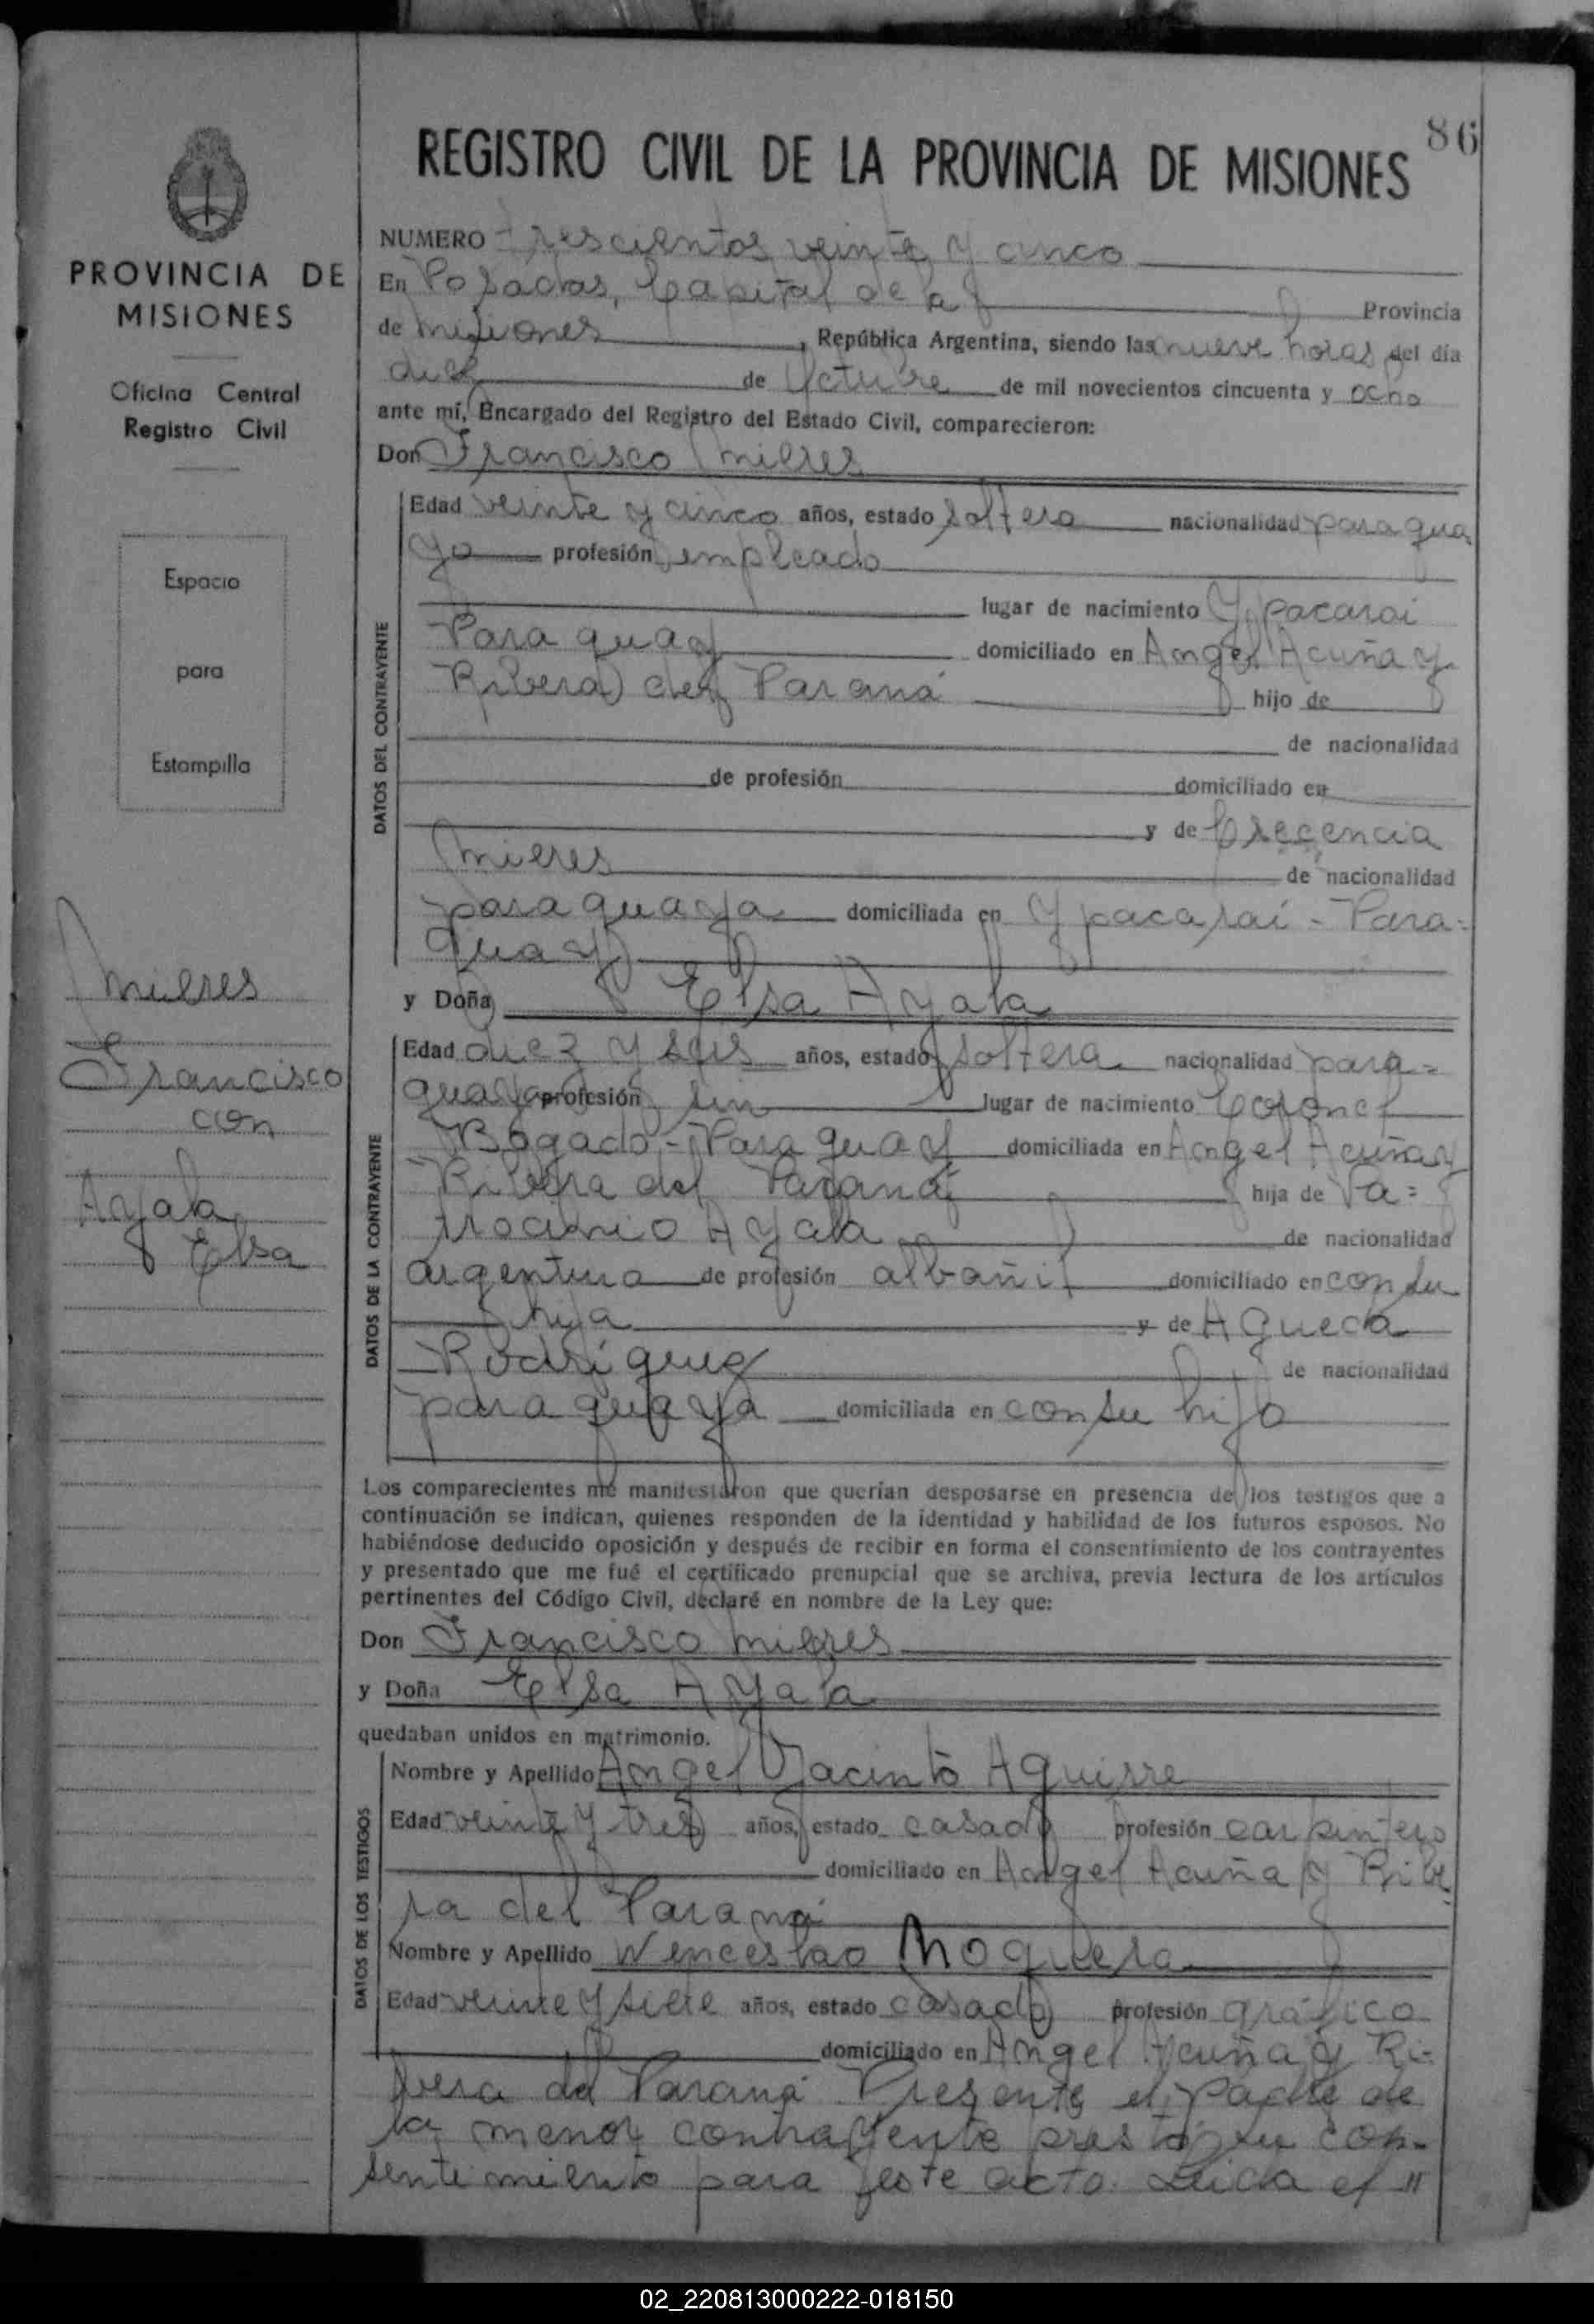 86
REGISTRO CIVIL DE LA PROVINCIA DE MISIONES
PROVINCIA DE
MISIONES
Oficina Central
Registro Civil
Espacio
para
Estampilla
Mieres
Francisco
con
Ayala
Elsa
NUMERO trescientos veinte y cinco
En Posadas, Capital de la Provincia
de Misiones, República Argentina, siendo las nueve horas del día
diez de Octubre de mil novecientos cincuenta y ocho
ante mí, Encargado del Registro del Estado Civil, comparecieron:
Don Francisco Mieres
DATOS DEL CONTRAYENTE
Edad veinte y cinco años, estado soltero nacionalidad paragua
yo profesión empleado
lugar de nacimiento Ypacarai
Paraguay domiciliado en Angel Acuña y
Ribera del Paraná hijo de
de nacionalidad
de profesión domiciliado en
y de Crecencia
Mieres de nacionalidad
paraguaya domiciliada en Ypacaraí - Para=
guay
y Doña Elsa Ayala
DATOS DE LA CONTRAYENTE
Edad diez y seis años, estado soltera nacionalidad para=
guaya profesión sin lugar de nacimiento Coronel
Bogado - Paraguay domiciliada en Angel Acuña y
Ribera del Paraná hija de Pa=
trocinio Ayala de nacionalidad
argentino de profesión albañil domiciliado en con su
hija y de Agueda
Rodríguez de nacionalidad
paraguaya domiciliada en con su hija
Los comparecientes me manifestaron que querían desposarse en presencia de los testigos que a
continuación se indican, quienes responden de la identidad y habilidad de los futuros esposos. No
habiéndose deducido oposición y después de recibir en forma el consentimiento de los contrayentes
y presentado que me fué el certificado prenupcial que se archiva, previa lectura de los artículos
pertinentes del Código Civil, declaré en nombre de la Ley que:
Don Francisco Mieres
y Doña Elsa Ayala
quedaban unidos en matrimonio.
DATOS DE LOS TESTIGOS
Nombre y Apellido Angel Jacinto Aguirre
Edad veinte y tres años, estado casado profesión carpintero
domiciliado en Angel Acuña y Ribe
ra del Paraná
Nombre y Apellido Wenceslao Noguera
Edad veinte y siete años, estado casado profesión gráfico
domiciliado en Angel Acuña y Ri-
bera del Paraná Presente el padre de
la menor contrayente prestó su con-
sentimiento para este acto. Leida el "
02_220813000222-018150